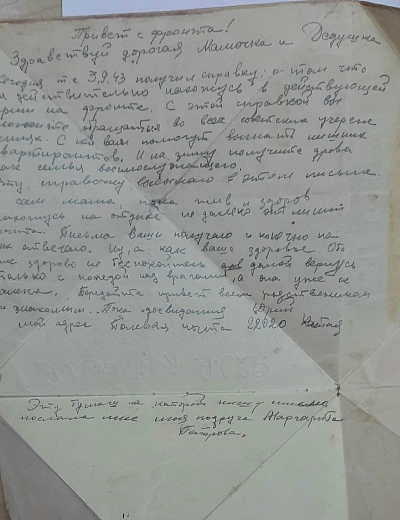 Привет с фронта!
Здравствуй дорогая Мамочка и Дедушка
Сегодня т.е 3.9.43 получил справку, о том что
я действительно нахожусь в действующей
армии на фронте. С этой справкой вы
можете обращаться во все советские учреж-
дения. С ней вам помогут выгнать лишних
квартирантов, и на зиму получите дрова
как семья военнослужащего.
Эту справочку высылаю в этом письме.
сам мама, пока жив и здоров
нахожусь на отдыхе не далеко от линии
фронта. Письма Ваши получаю и конечно на
них отвечаю. Ну, а как ваше здоровье. Обо
мне здорово не беспокойтесь домой вернусь
только с победой над врагами, а она уже не
далека. Передайте привет всем родственникам
и знакомым... Пока досвидания Юрий
мой адрес Полевая почта
Эту бумагу на которой пишу письмо
послала мне моя подруга Маргарита
Петрова.